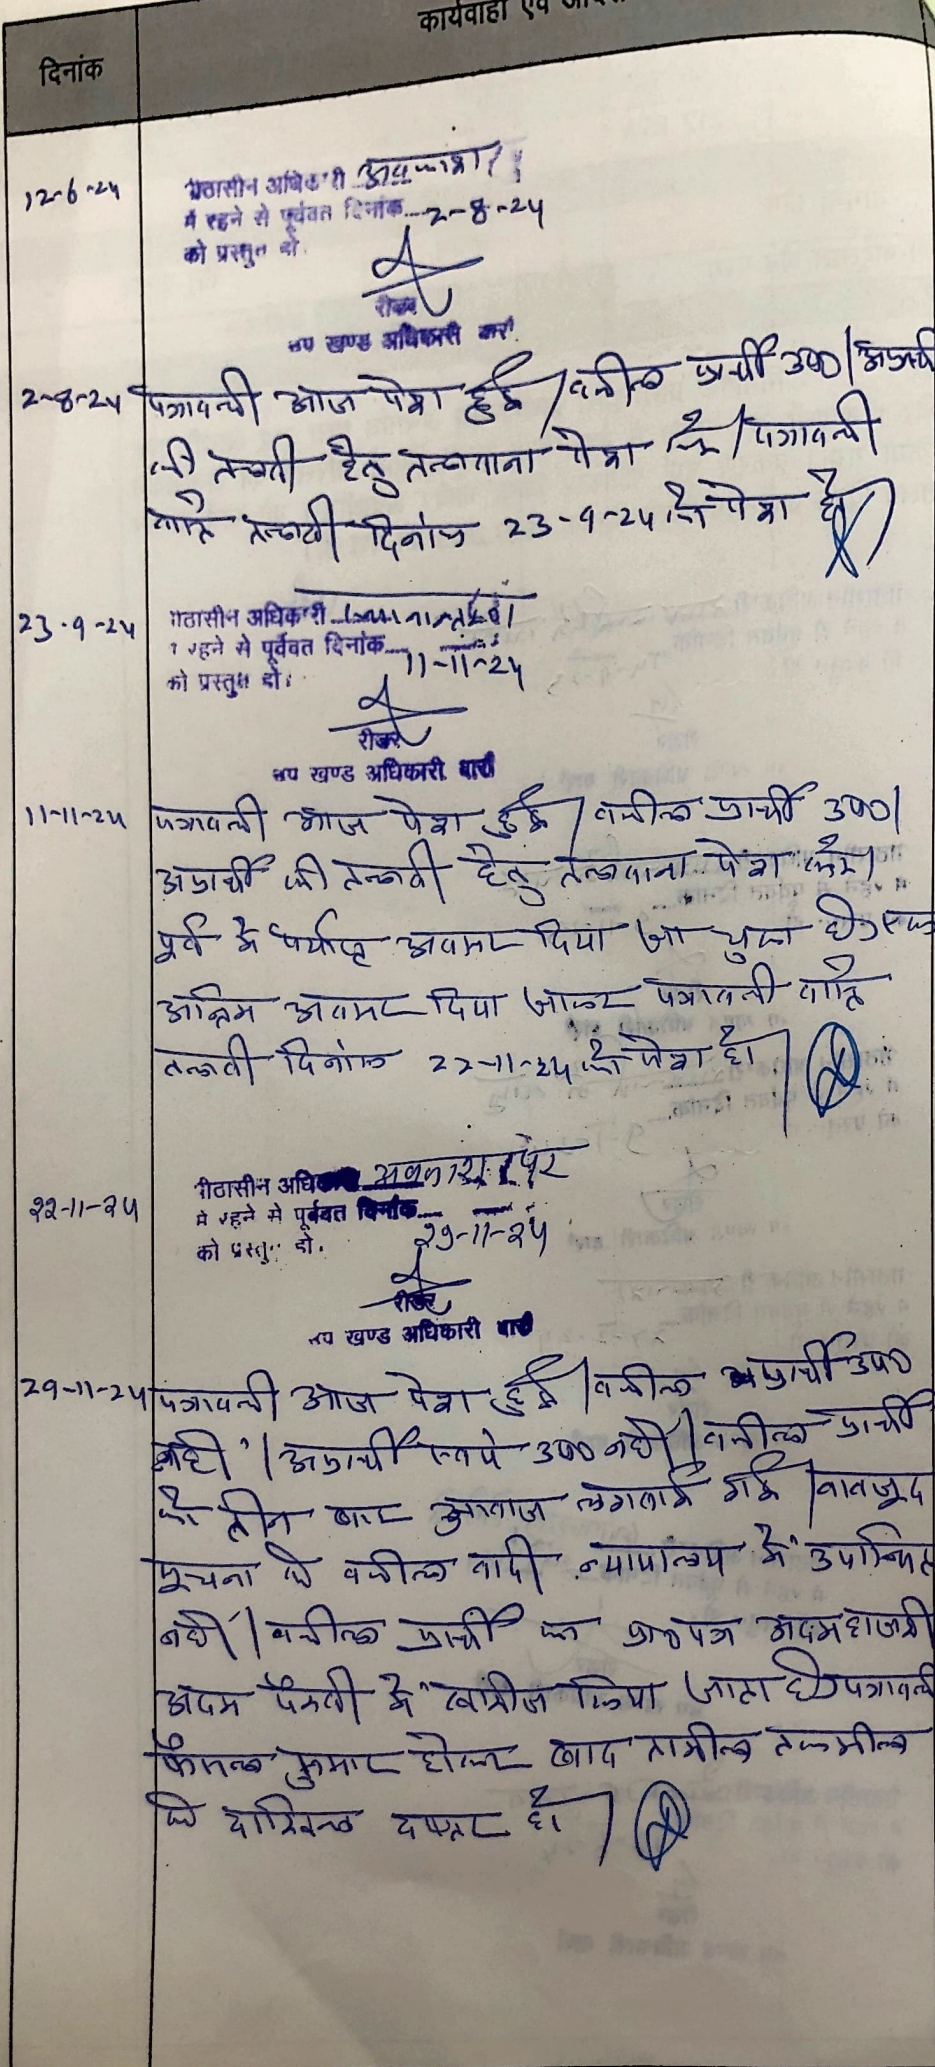 कार्यवाही एवं
दिनांक
12-6-24
पीठासीन अधिकारी अवकाश
में रहने से पूर्ववत दिनांक 2-8-24
को प्रस्तुत हो.
रीडर
उप खण्ड अधिकारी
2-8-24 पत्रावली आज पेश हुई / वकील प्रार्थी उप0 / अप्रार्थी
की तलबी हेतु तलबाना पेश करे / पत्रावली
वास्ते तलबी दिनांक 23-9-24 को पेश हो
23-9-24
पीठासीन अधिकारी
रहने से पूर्ववत दिनांक 11-11-24
को प्रस्तुत हो.
रीडर
उप खण्ड अधिकारी
11-11-24 पत्रावली आज पेश हुई / वकील प्रार्थी उप0 /
अप्रार्थी की तलबी हेतु तलबाना पेश करे /
पूर्व मे पर्याप्त अवसर दिया जा चुका है एक
अन्तिम अवसर दिया जाकर पत्रावली वास्ते
तलबी दिनांक 22-11-24 को पेश हो /
22-11-24
पीठासीन अधिकारी अवकाश पर
में रहने से पूर्ववत दिनांक 29-11-24
को प्रस्तुत हो.
रीडर
उप खण्ड अधिकारी
29-11-24 पत्रावली आज पेश हुई / वकील प्रार्थी उप0
नही / अप्रार्थी स्वयं उप0 नही / वकील प्रार्थी
को तीन बार आवाज लगवाई गई / बावजूद
सूचना के वकील वादी न्यायालय मे उपस्थित
नही / वकील प्रार्थी का प्रा0 पत्र अदमहाजरी
अदम पैरवी मे खारीज किया जाता है पत्रावली
फैसल सुमार होकर बाद तामील तकमील
के दाखिल दफ्तर हो /